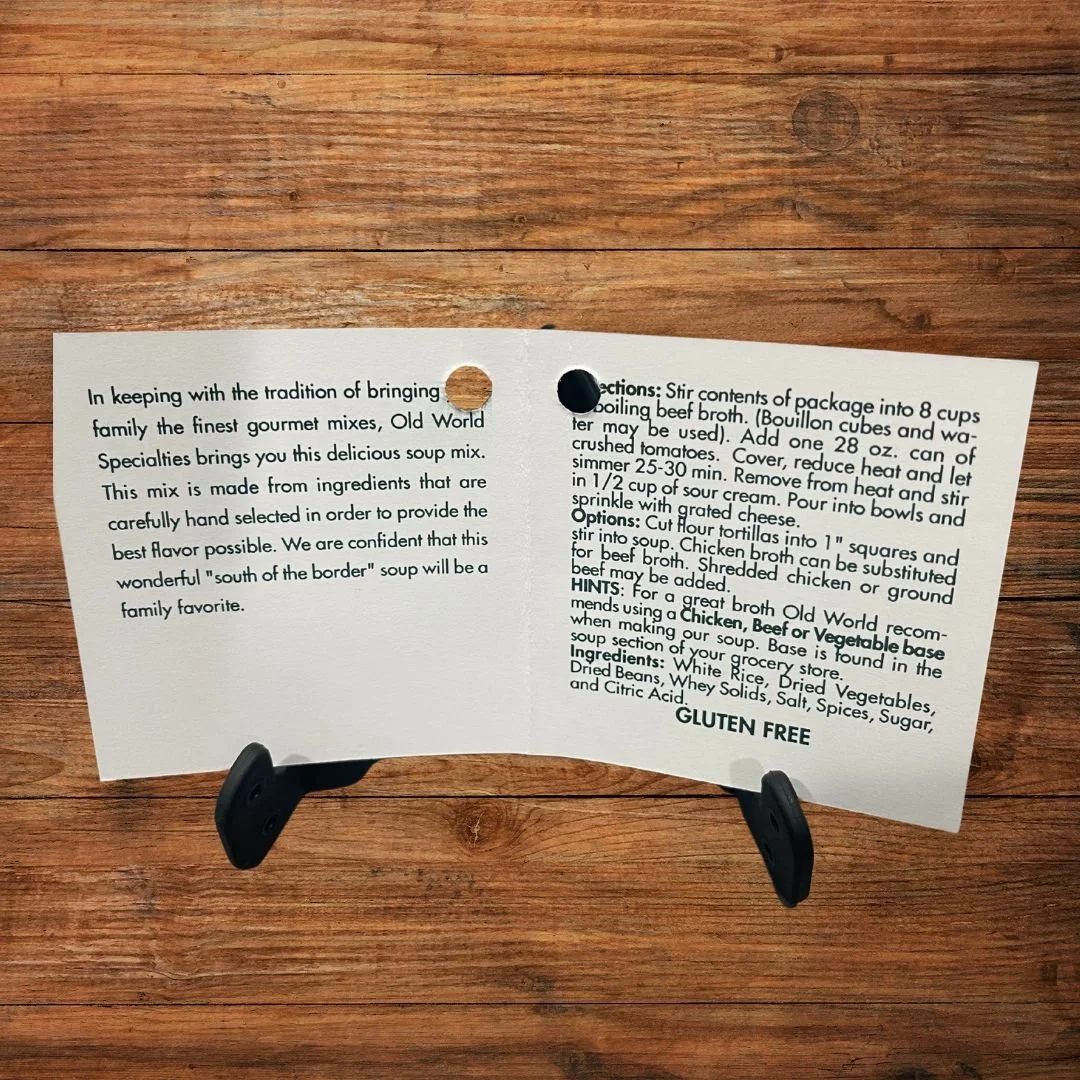 In keeping with the tradition of bringing
family the finest gourmet mixes, Old World
Specialties brings you this delicious soup mix.
This mix is made from ingredients that are
carefully hand selected in order to provide the
best flavor possible. We are confident that this
wonderful "south of the border" soup will be a
family favorite.
ections: Stir contents of package into 8 cups
boiling beef broth. (Bouillon cubes and wa-
ter may be used). Add one 28 oz. can of
crushed tomatoes. Cover, reduce heat and let
simmer 25-30 min. Remove from heat and stir
in 1/2 cup of sour cream. Pour into bowls and
sprinkle with grated cheese.
Options: Cut flour tortillas into 1" squares and
stir into soup. Chicken broth can be substituted
for beef broth. Shredded chicken or ground
beef may be added.
HINTS: For a great broth Old World recom-
mends using a Chicken, Beef or Vegetable base
when making our soup. Base is found in the
soup section of your grocery store.
Ingredients: White Rice, Dried Vegetables,
Dried Beans, Whey Solids, Salt, Spices, Sugar,
and Citric Acid.
GLUTEN FREE